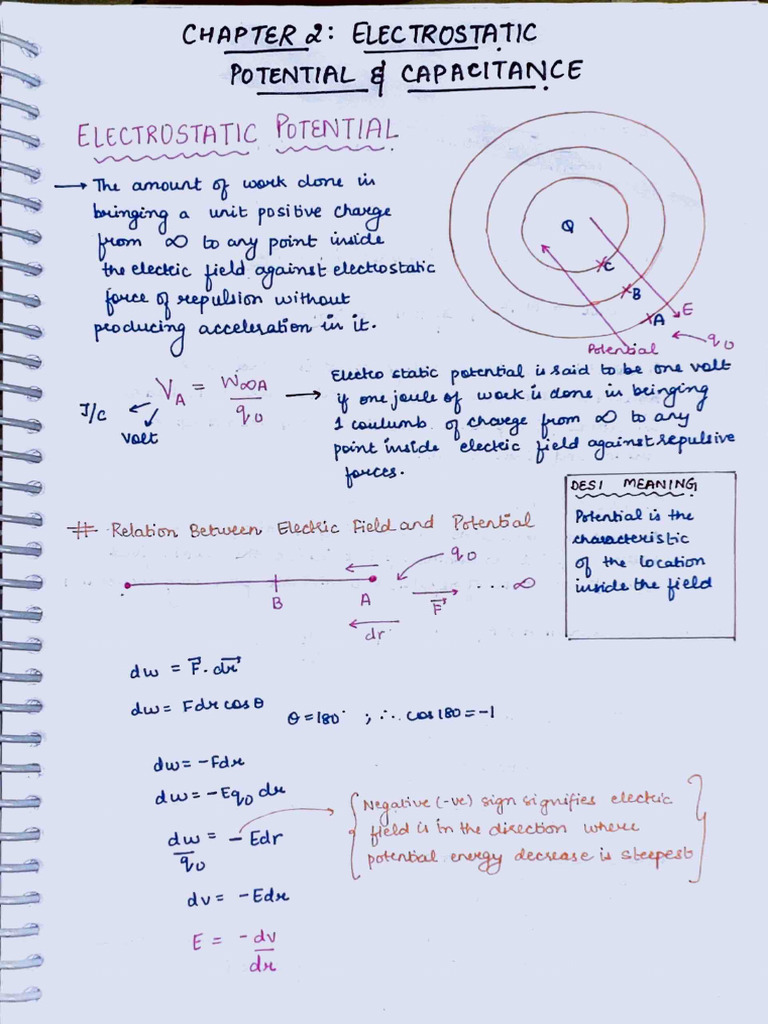 CHAPTER 2: ELECTROSTATIC
POTENTIAL & CAPACITANCE
ELECTROSTATIC POTENTIAL
→ The amount of work done in
bringing a unit positive charge
from ∞ to any point inside
the electric field against electrostatic
force of repulsion without
producing acceleration in it.
Q
C
B
A
E
q0
Potential
V_A = W∞A / q0 →
J/C
Volt
Electro static potential is said to be one volt
if one joule of work is done in bringing
1 coulumb of charge from ∞ to any
point inside electric field against repulsive
forces.
DESI MEANING
Potential is the
characteristic
of the location
inside the field
# Relation Between Electric Field and Potential
q0
B A F⃗ .... ∞
dr
dw = F⃗. dr⃗
dw = Fdr cosθ θ = 180° ; ∴ cos 180 = -1
dw = -Fdr
dw = -Eq0 dr
dw/q0 = - Edr
{Negative (-ve) sign signifies electric
field is in the direction where
potential energy decrease is steepest}
dv = -Edr
E = -dv/dr